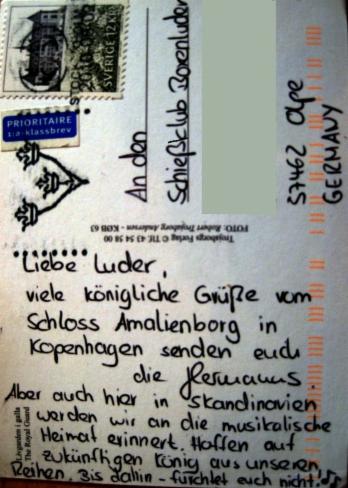 SVERIGE 12KR
PRIORITAIRE
1:a-klassbrev
An den
Schießclub Boxenluder
57462 Olpe
GERMANY
Trojaborgs Forlag © Tlf. 43 54 58 00
FOTO: Robert Trojaborg Andersen - KØB 63
Livgarden i galla
The Royal Guard
Liebe Luder,
viele königliche Grüße vom
Schloss Amalienborg in
Kopenhagen senden euch
die Hermanns.
Aber auch hier in Skandinavien
werden wir an die musikalische
Heimat erinnert. Hoffen auf
zukünftigen König aus unseren
Reihen. Bis dahin - fürchtet euch nicht!